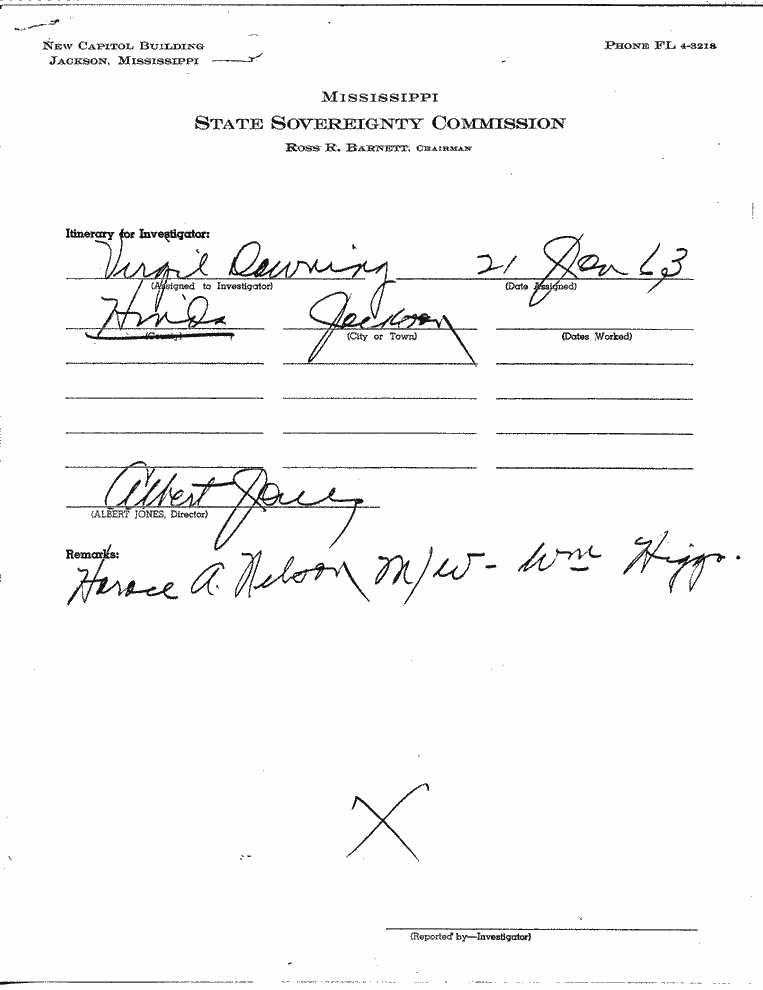 NEW CAPITOL BUILDING
JACKSON, MISSISSIPPI
PHONE FL 4-3218
MISSISSIPPI
STATE SOVEREIGNTY COMMISSION
ROSS R. BARNETT, CHAIRMAN
Itinerary for Investigator:
Virgil Downing 21 Jan 63
(Assigned to Investigator) (Date Assigned)
Hinds Jackson
(County) (City or Town) (Dates Worked)
Albert Jones
(ALBERT JONES, Director)
Remarks:
Horace A. Nelson M/W - Wm Higgs.
X
(Reported by—Investigator)